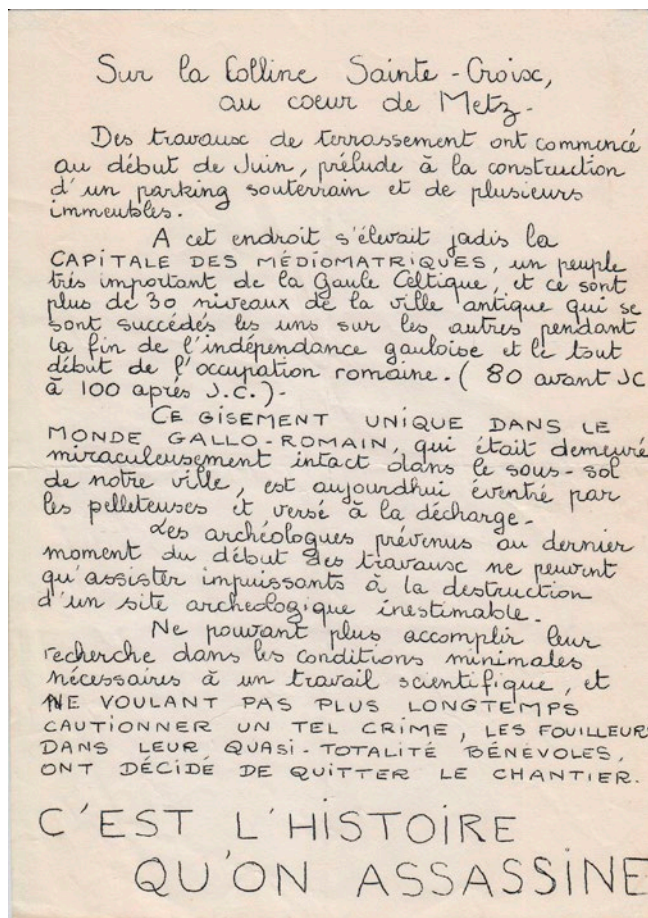 Sur la Colline Sainte-Croix,
au coeur de Metz-
Des travaux de terrassement ont commencé
au début de Juin, prélude à la construction
d'un parking souterrain et de plusieurs
immeubles.
A cet endroit s'élevait jadis la
CAPITALE DES MÉDIOMATRIQUES, un peuple
très important de la Gaule Celtique, et ce sont
plus de 30 niveaux de la ville antique qui se
sont succédés les uns sur les autres pendant
la fin de l'indépendance gauloise et le tout
début de l'occupation romaine. (80 avant JC
à 100 après J.C.)-
CE GISEMENT UNIQUE DANS LE
MONDE GALLO-ROMAIN, qui était demeuré
miraculeusement intact dans le sous-sol
de notre ville, est aujourd'hui éventré par
les pelleteuses et versé à la décharge-
Les archéologues prévenus au dernier
moment du début des travaux ne peuvent
qu'assister impuissants à la destruction
d'un site archéologique inestimable-
Ne pouvant plus accomplir leur
recherche dans les conditions minimales
nécessaires à un travail scientifique, et
NE VOULANT PAS PLUS LONGTEMPS
CAUTIONNER UN TEL CRIME, LES FOUILLEURS
DANS LEUR QUASI-TOTALITÉ BÉNÉVOLES,
ONT DÉCIDÉ DE QUITTER LE CHANTIER.
C'EST L'HISTOIRE
QU'ON ASSASSINE